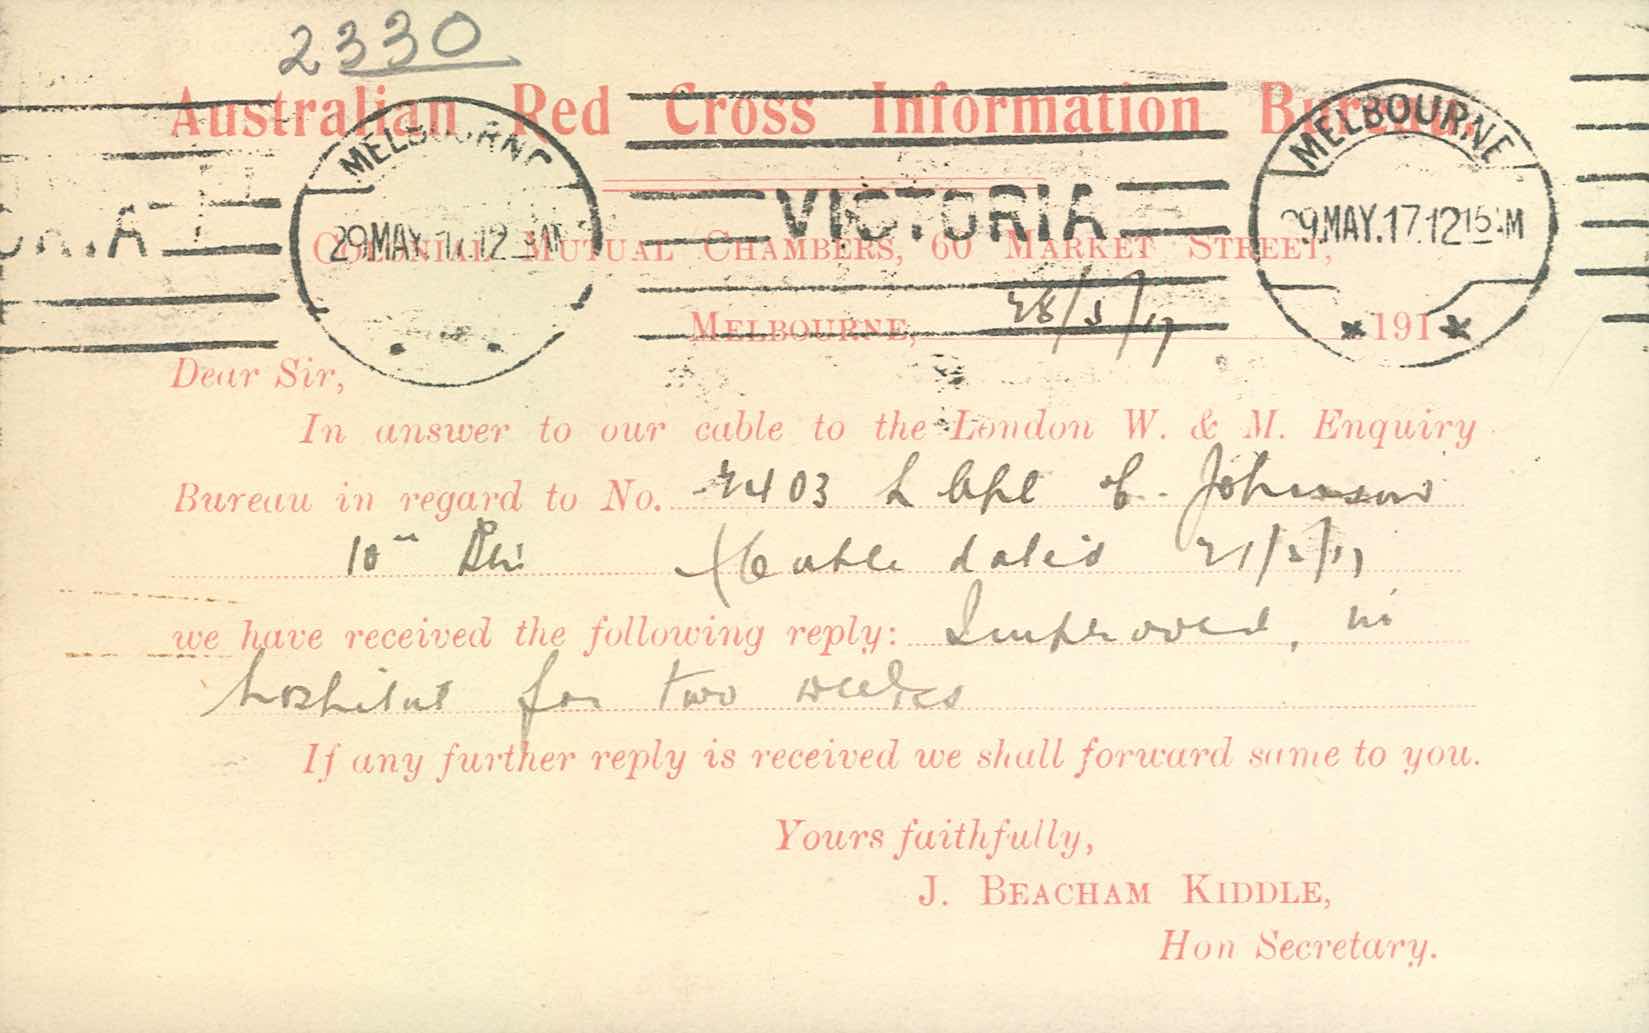 2330
Australian Red Cross Information Bureau.
MELBOURNE
VICTORIA
MELBOURNE
29MAY.17.12 29MAY.17.1215
COLONIAL MUTUAL CHAMBERS, 60 MARKET STREET,
MELBOURNE, 28/5/17 191
Dear Sir,
In answer to our cable to the London W. & M. Enquiry
Bureau in regard to No. 2403 L Cpl C. Johnson
10th (Cable dated 21/5/17
we have received the following reply: Improved, in
hospital for two weeks
If any further reply is received we shall forward same to you.
Yours faithfully,
J. BEACHAM KIDDLE,
Hon Secretary.